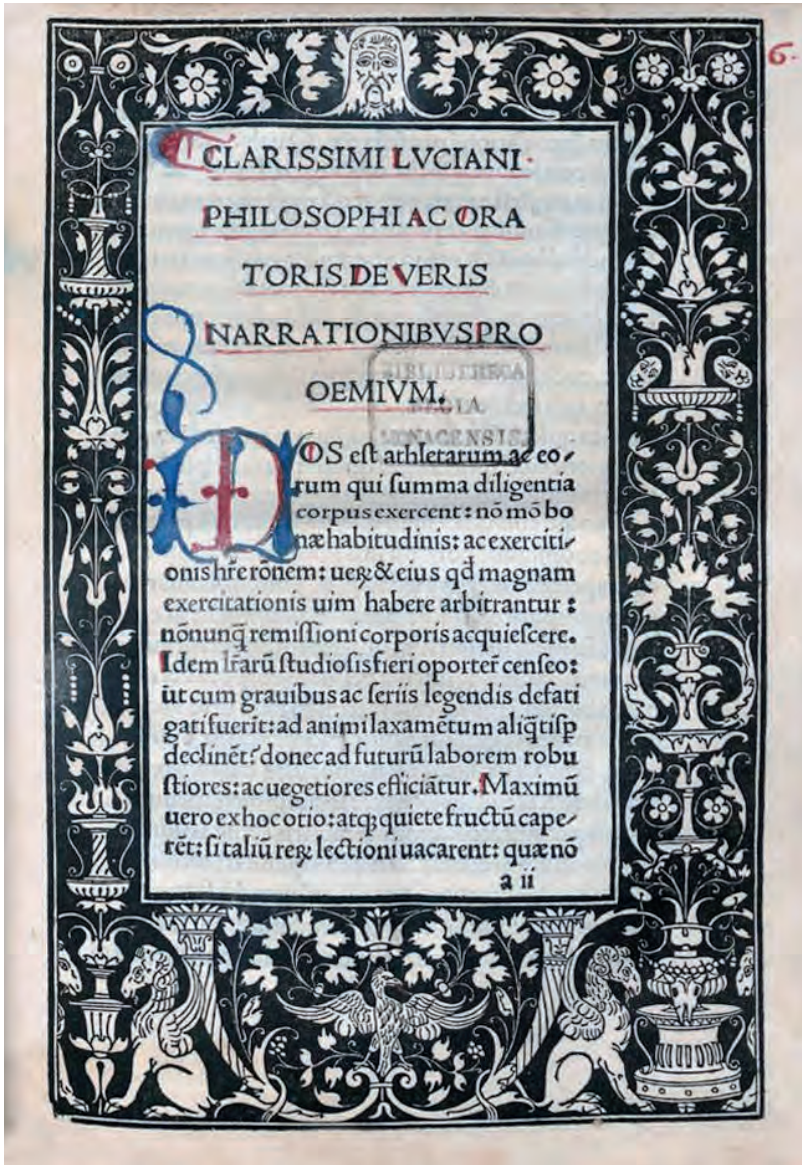 6.
CLARISSIMI LVCIANI·
PHILOSOPHI AC ORA
TORIS DE VERIS
NARRATIONIBVS PRO
OEMIVM.
BIBLIOTHECA
REGIA
MONACENSIS.
MOS est athletarum ac eo⸗
rum qui summa diligentia
corpus exercent: nō mō bo
næ habitudinis: ac exerciti⸗
onis hr̄e rōnem: ueꝝ & eius qd̄ magnam
exercitationis uim habere arbitrantur :
nōnunq̄ remissioni corporis acquiescere.
Idem lr̄arū studiosis fieri oportet̄ censeo:
ut cum grauibus ac seriis legendis defati
gati fuerīt: ad animi laxamētum aliq̄tisp
declinēt: donec ad futurū laborem robu
stiores: ac uegetiores efficiātur. Maximū
uero ex hoc otio: atqꝫ quiete fructū cape⸗
rēt: si taliū reꝝ lectioni uacarent: quæ nō
a ii